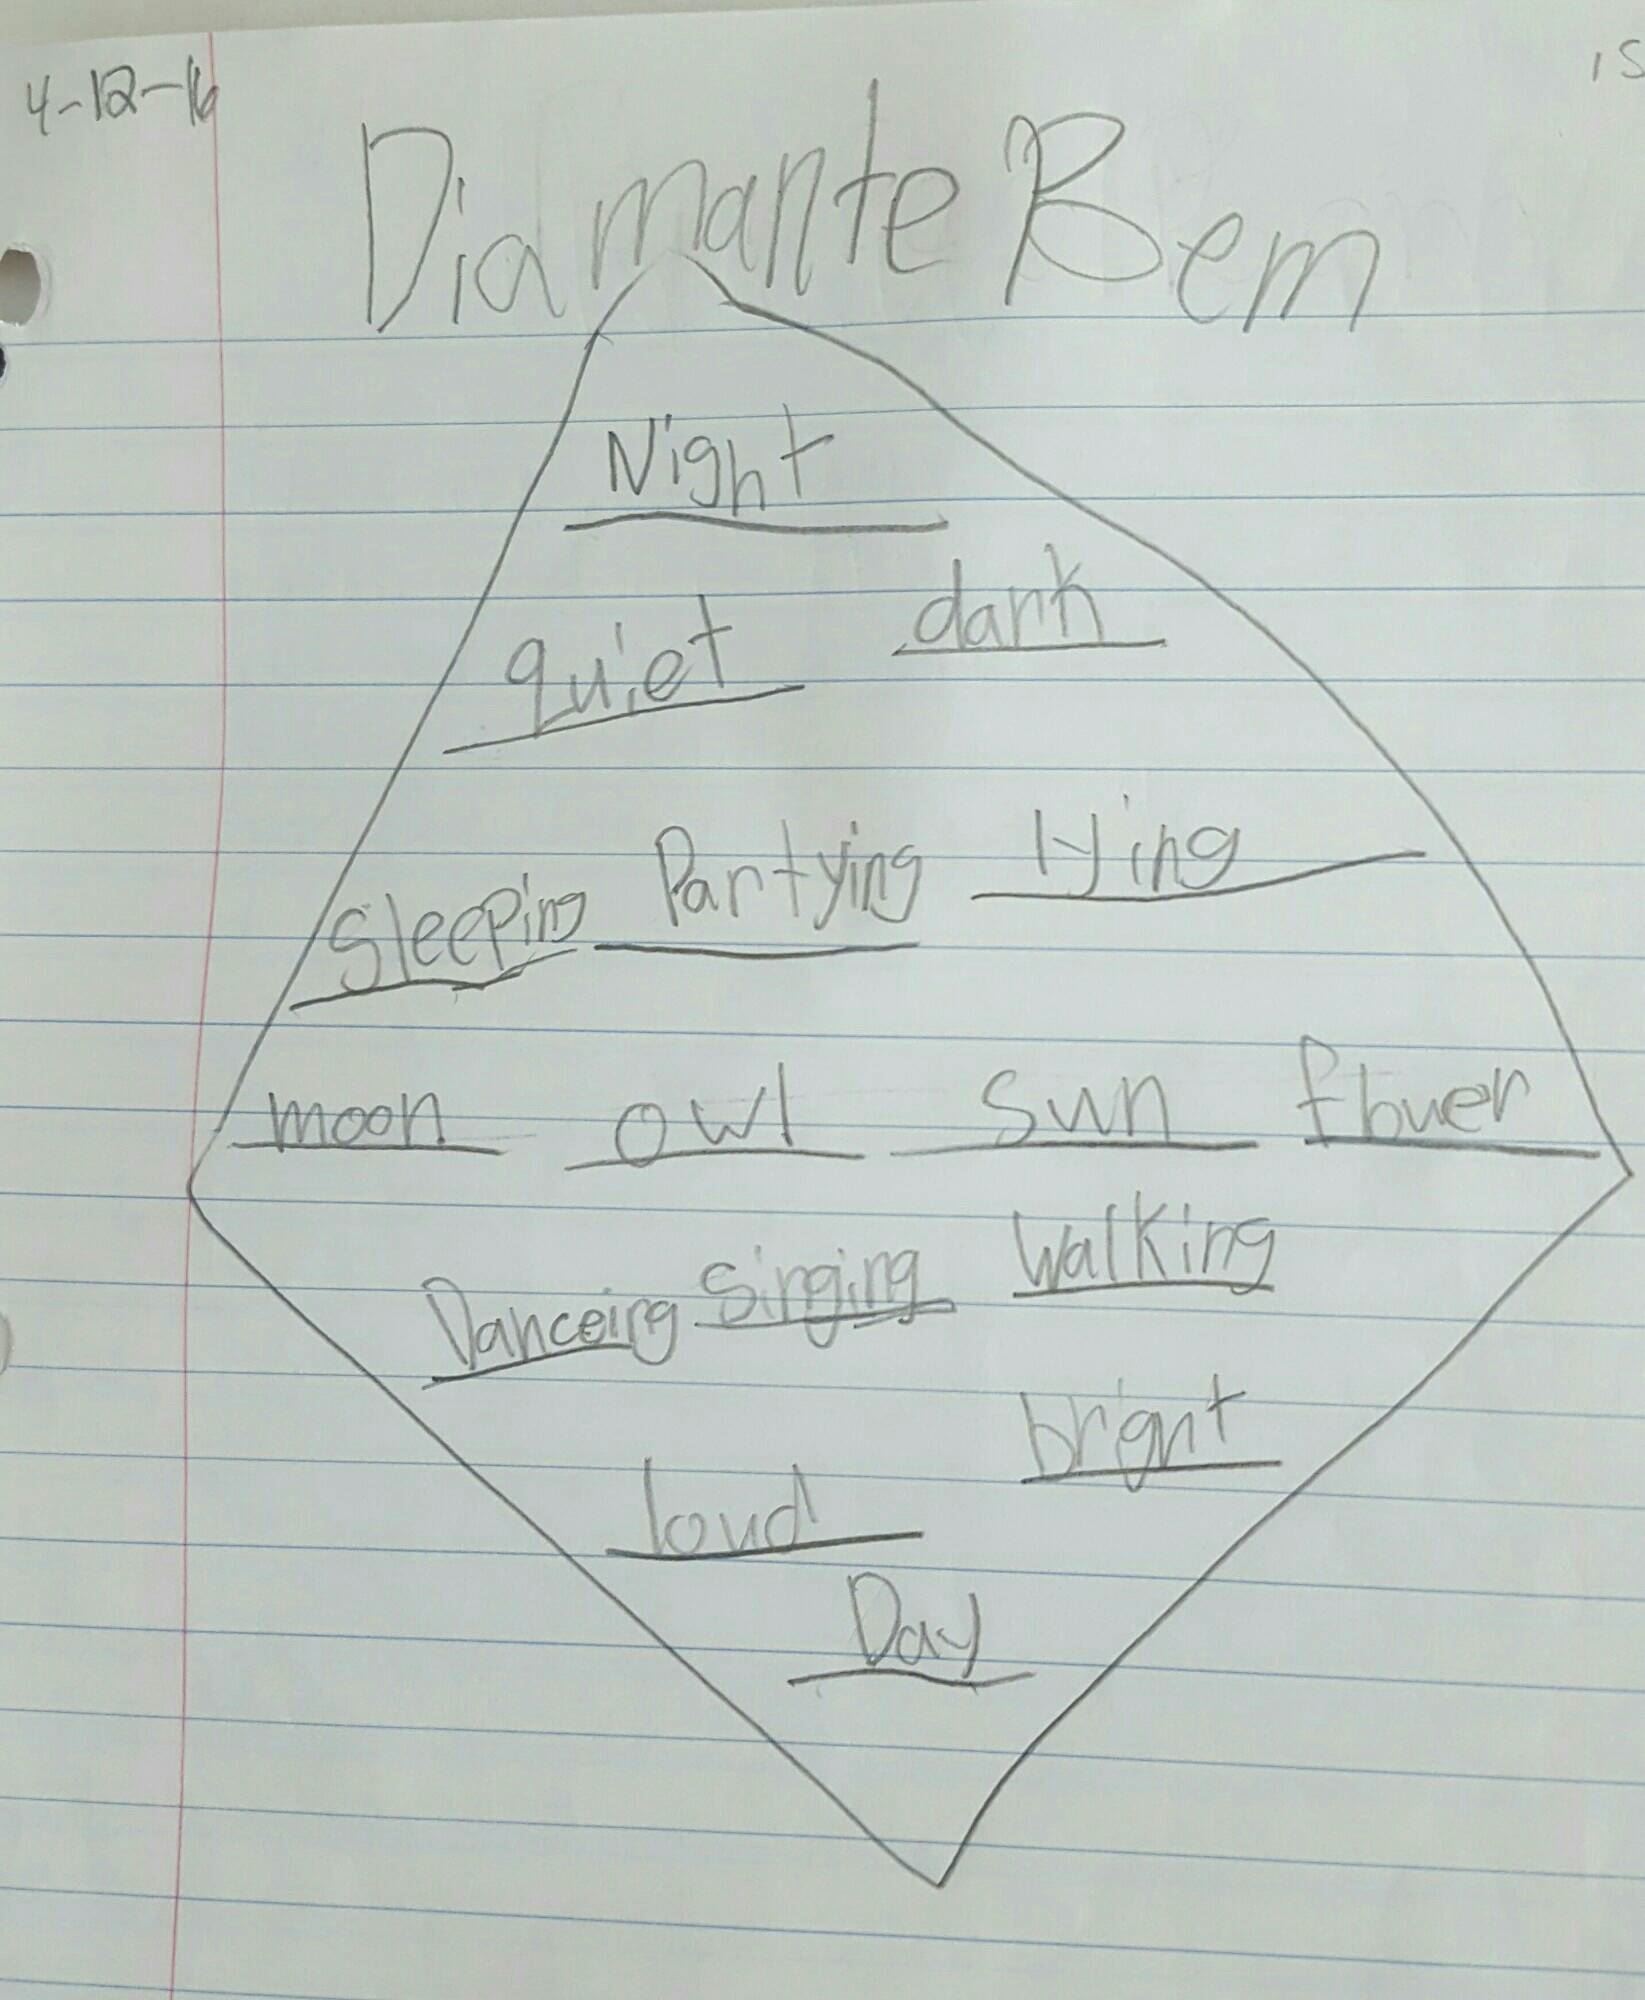 4-12-16
15
Diamante Bem
Night
quiet dark
Sleeping Partying lying
moon owl sun flower
Danceing Singing Walking
loud bright
Day